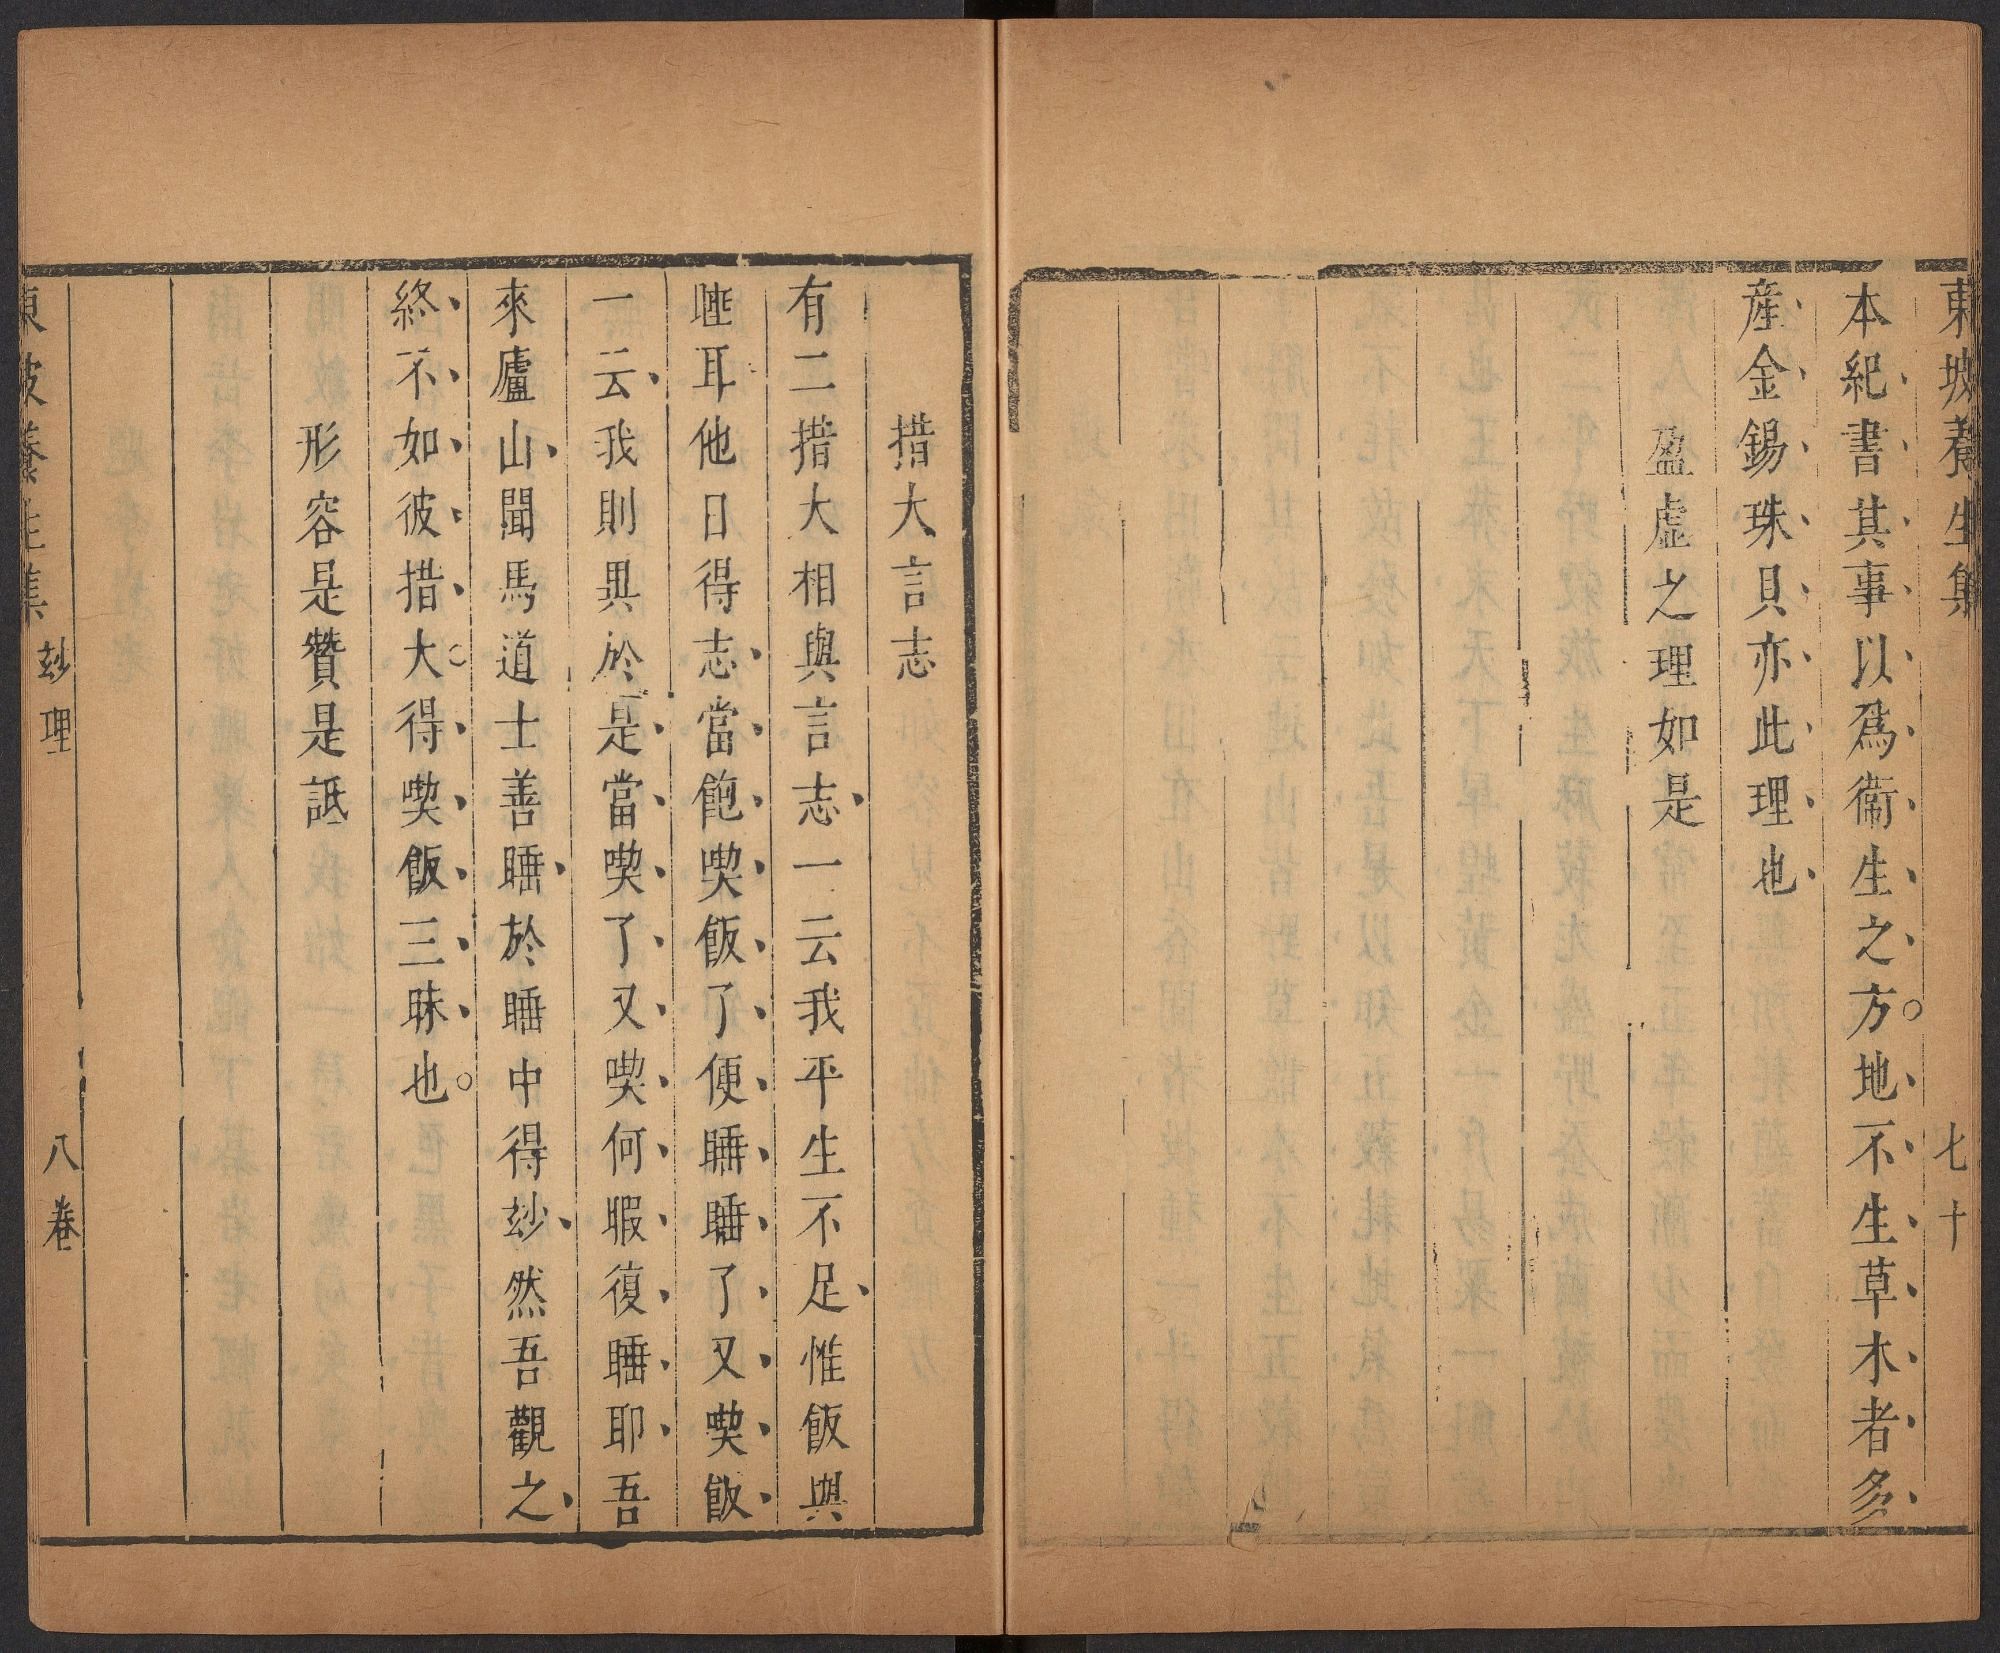 東坡養生集 七十
本紀書其事以爲衞生之方地不生草木者多
產金錫珠貝亦此理也
盈虛之理如是
措大言志
有二措大相與言志一云我平生不足惟飯與
睡耳他日得志當飽喫飯了便睡睡了又喫飯
一云我則異於是當喫了又喫何暇復睡耶吾
來廬山聞馬道士善睡於睡中得玅然吾觀之
終不如彼措大得喫飯三昧也
形容是贊是詆
東坡養生集 玅理 八卷